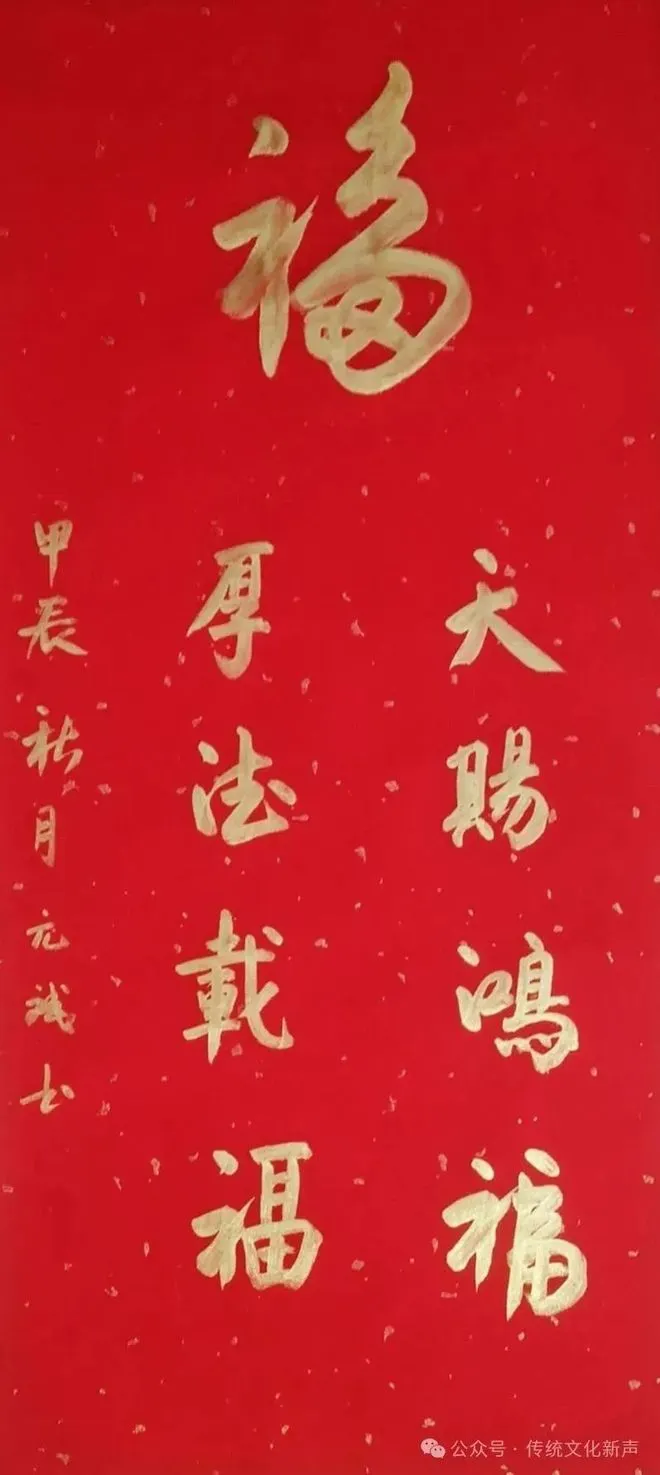 福
天赐鸿福
厚德載福
甲辰秋月元诚书
公众号·传统文化新声